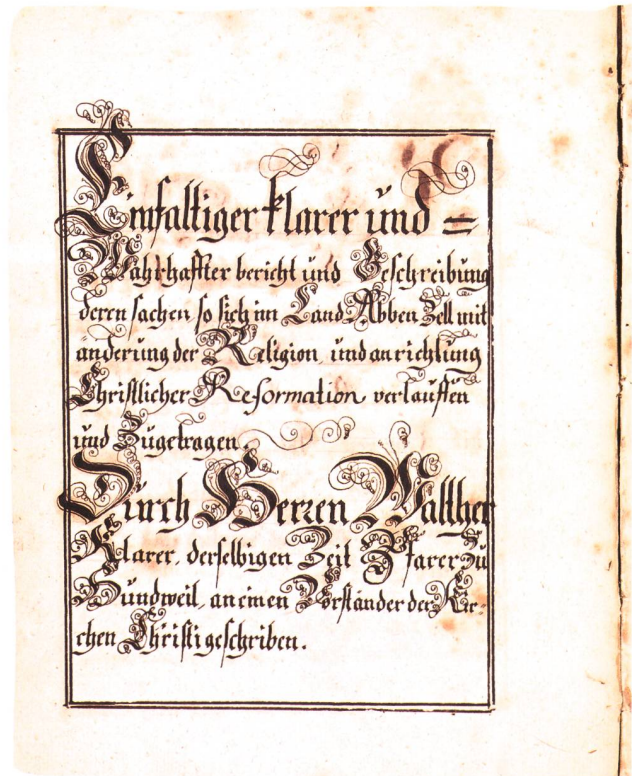 Einfaltiger klarer und =
Wahrhaffter bericht und Beschreibung
deren sachen so sich im Land Abben Zell mit
änderung der Religion und anrichtung
Christlicher Reformation verlauffen
und Zugetragen.
Durch Herren Walther
Klarer, derselbigen Zeit Pfarer Zu
Hundweil, an einen Vorständer der Kir-
chen Christi geschriben.